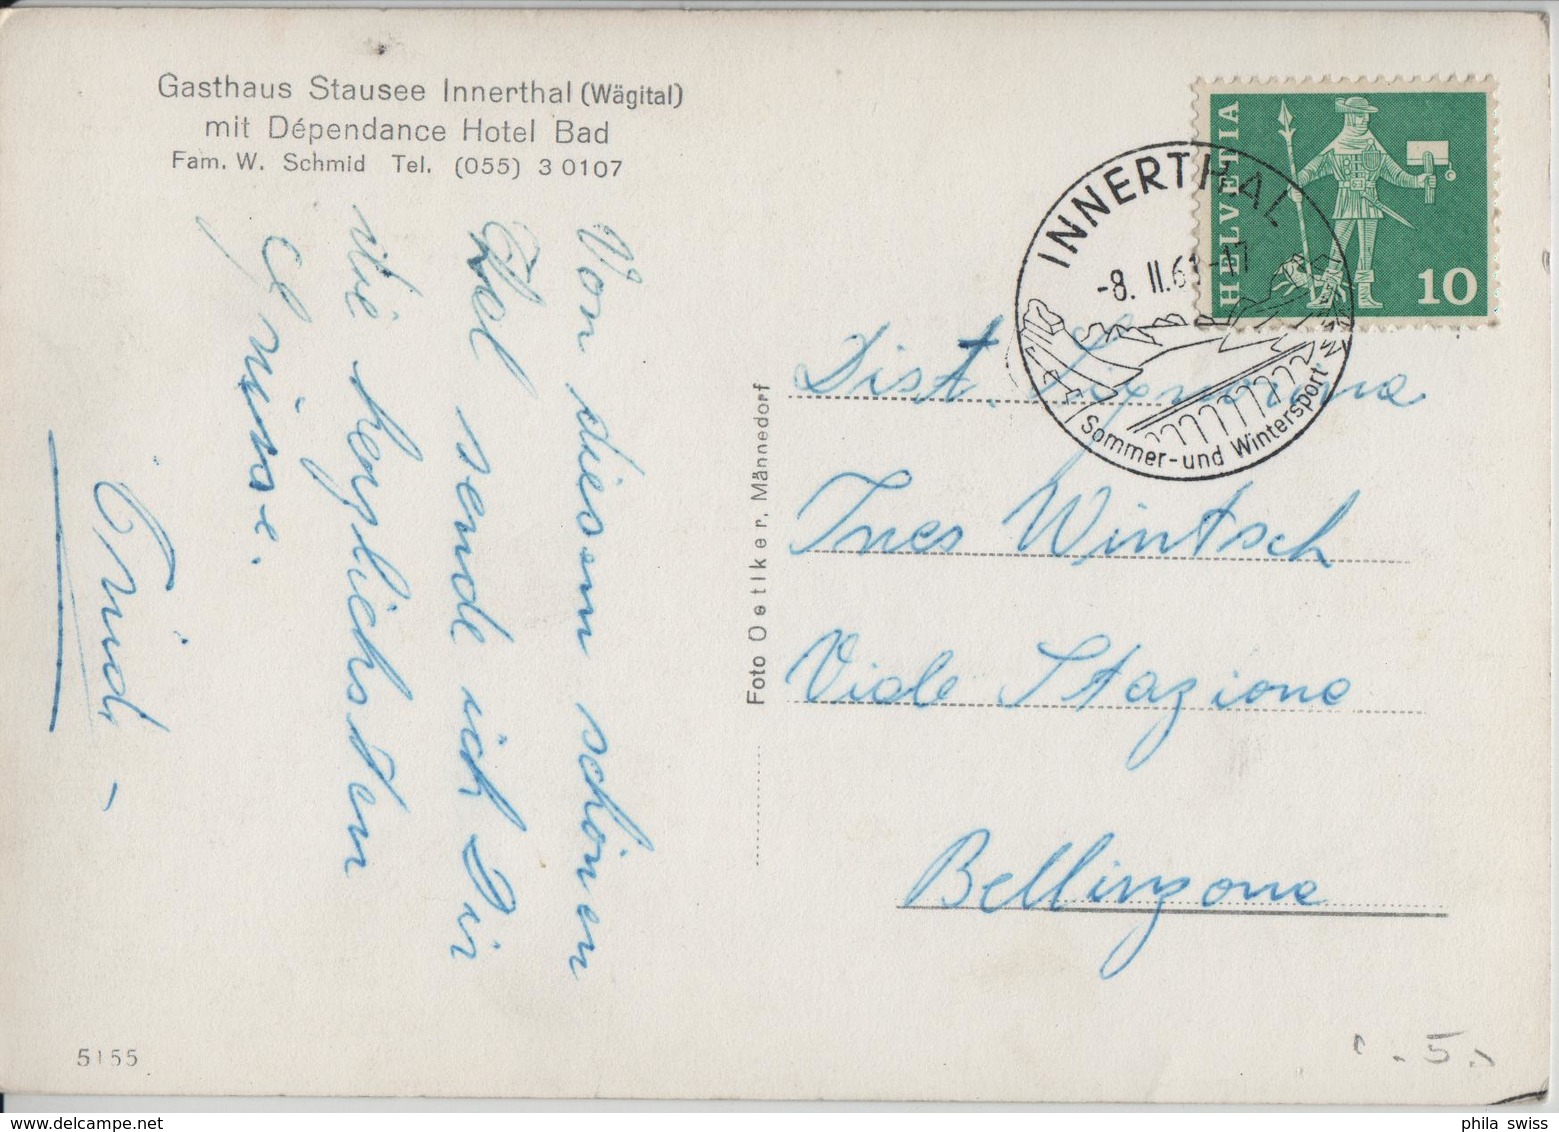 Gasthaus Stausee Innerthal (Wägital)
mit Dépendance Hotel Bad
Fam. W. Schmid Tel. (055) 3 0107
Von diesem schönen
Tal sende ich Dir
die herzlichsten
Grüsse.
Trudi
5155
Foto Oetiker, Männedorf
HELVETIA
10
INNERTHAL
-8. II. 61-17
Sommer- und Wintersport
Dist. Signorina
Ines Wintsch
Viale Stazione
Bellinzona
5.
phila swiss